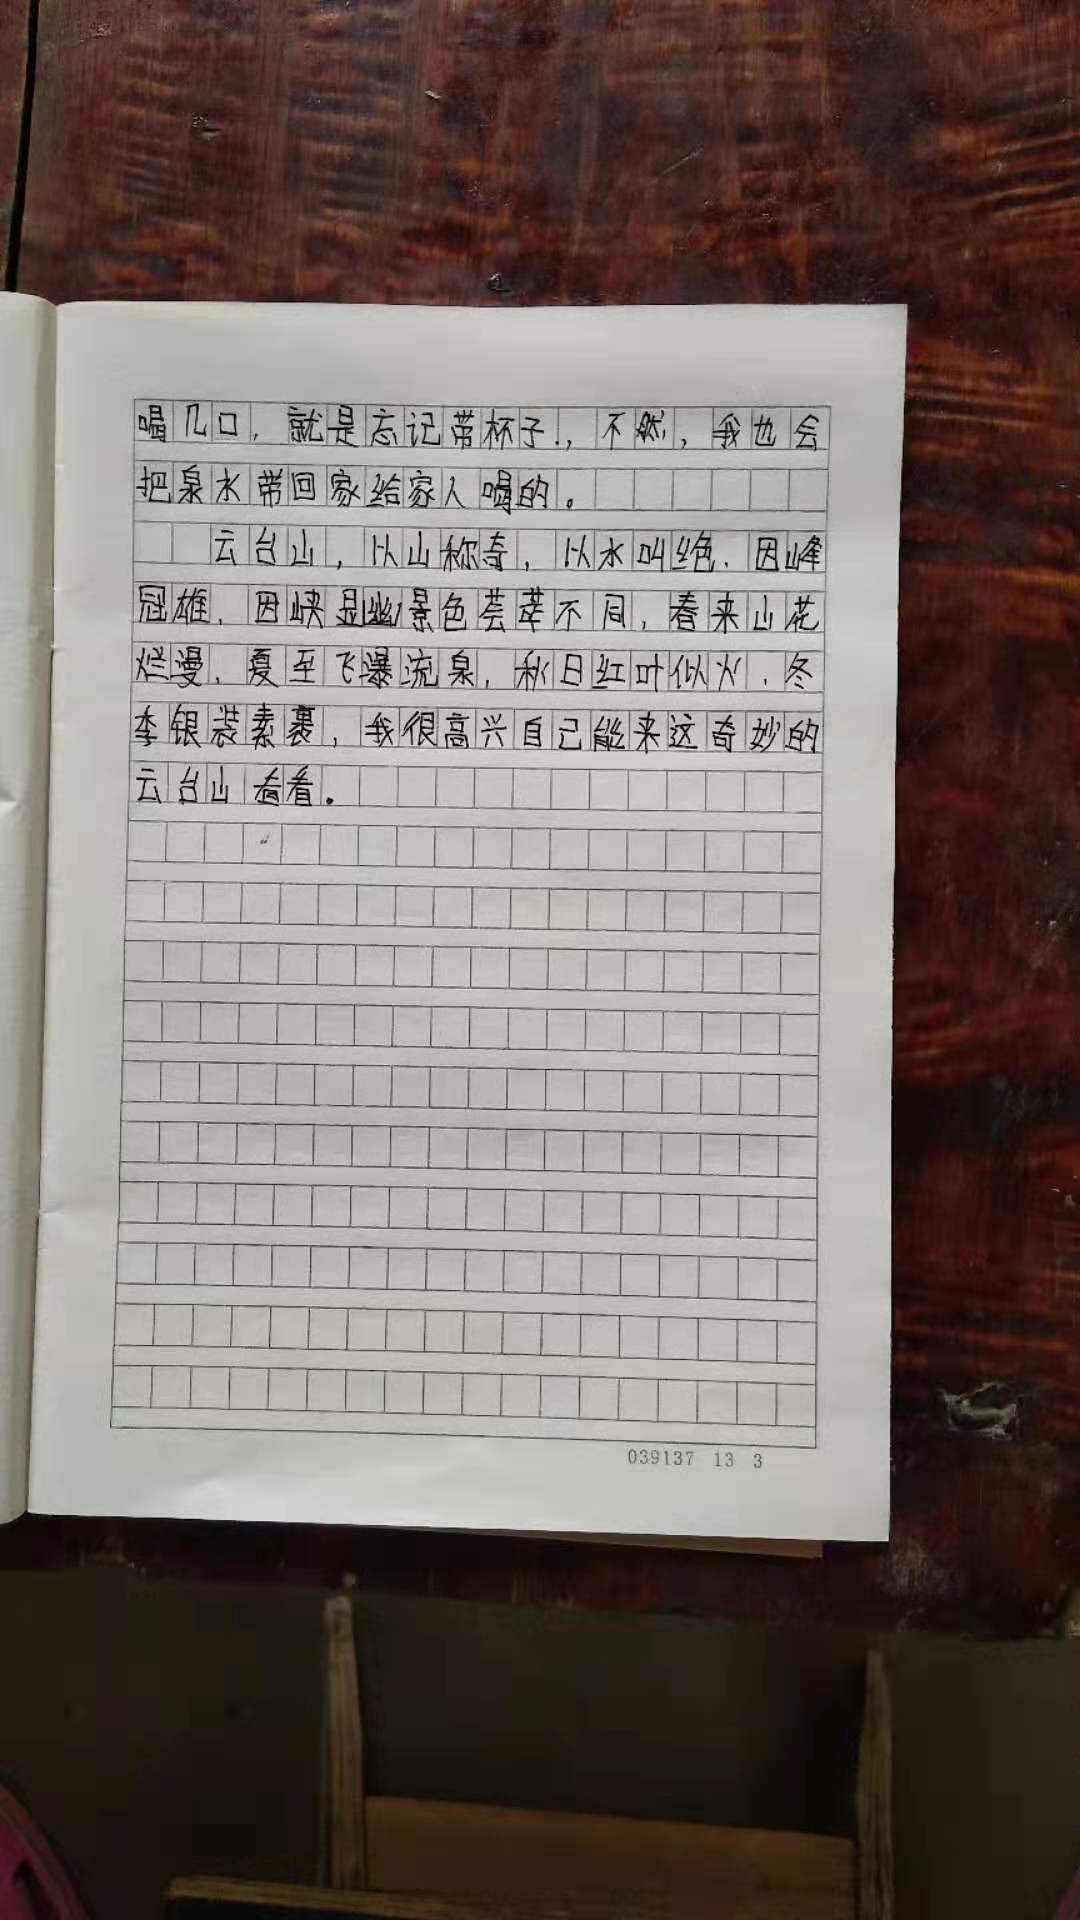 喝几口，就是忘记带杯子.，不然，我也会
把泉水带回家给家人喝的。
云台山，以山称奇，以水叫绝．因峰
冠雄．因峡显幽景色荟萃不同，春来山花
烂漫．夏至飞瀑流泉，秋日红叶似火．冬
季银装素裹，我很高兴自己能来这奇妙的
云台山看看。
039137 13 3